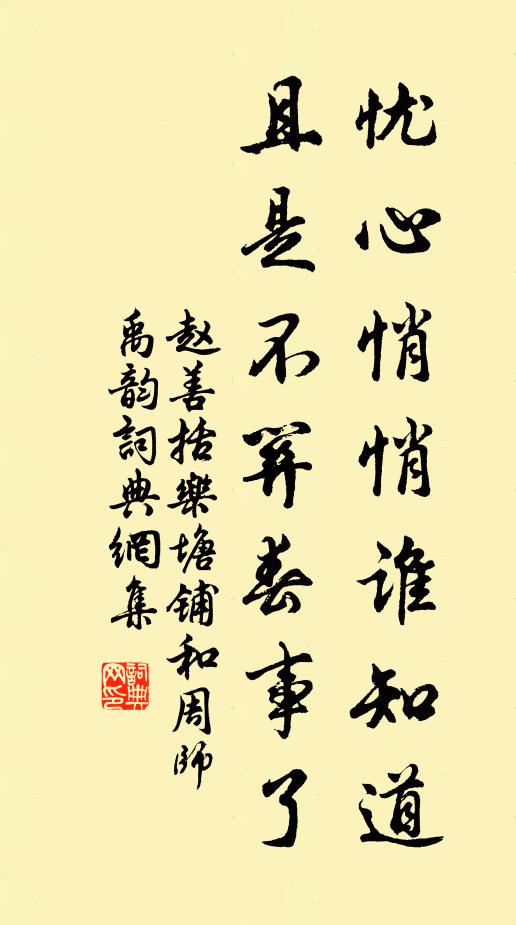 忧心悄悄谁知道
且是不关春事了
赵善括樂塘铺和周師
禹韵詞典網集
詞典网印